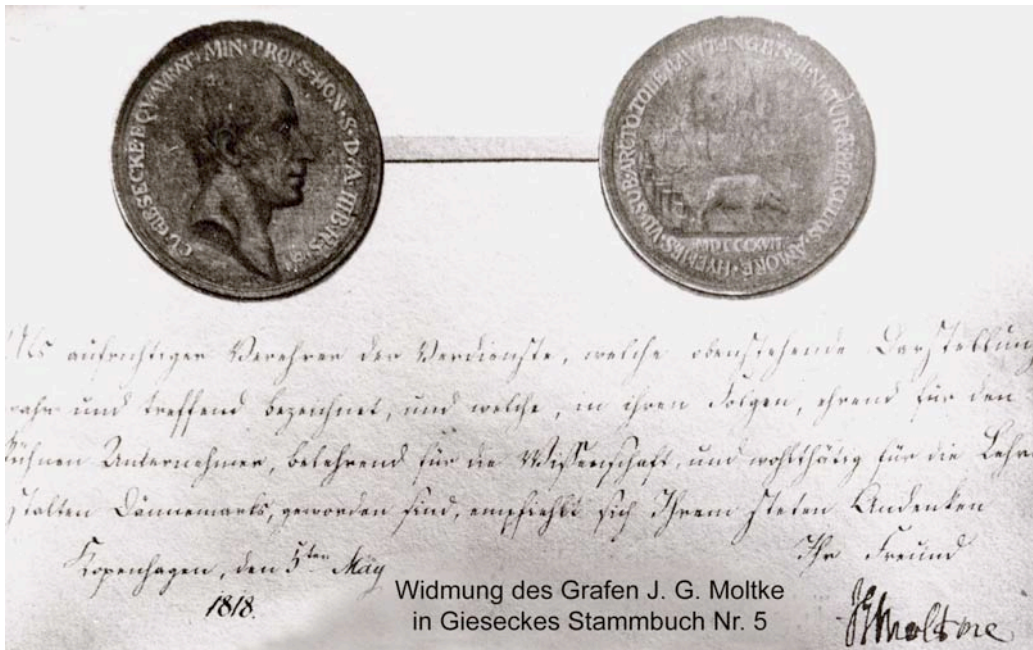 CL·GIESECKE·EQV·AVRAT·MIN·PROFS·HON·S·D·A·HIB
AMORE·HYEMES·VII·SUB·ARCTO
MDCCCXVII
Als aufrichtiger Verehrer der Verdienste, welche obenstehende Darstellung
wahr und treffend bezeichnet, und welche, in ihren Folgen, ehrend für den
kühnen Unternehmer, belehrend für die Wissenschaft, und wohlthätig für die Lehr
stalten Dännemarks, geworden sind, empfiehlt sich Ihrem steten Andenken
Ihr Freund
Kopenhagen, den 5ten May
1818.
Moltke
Widmung des Grafen J. G. Moltke
in Gieseckes Stammbuch Nr. 5